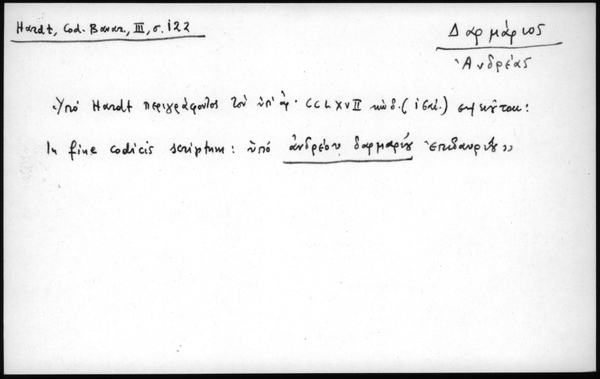 Hardt, Cod. Bavar., III, σ. 122
Δαρμάριος
Ἀνδρέας
Ὑπὸ Hardt περιγράφοντος τὸν ὑπ' ἀρ. CCLXVII κώδ. σημειοῦται:
In fine codicis scriptum: ὑπὸ ἀνδρέου δαρμαρίου ἐπιδαυρίου»